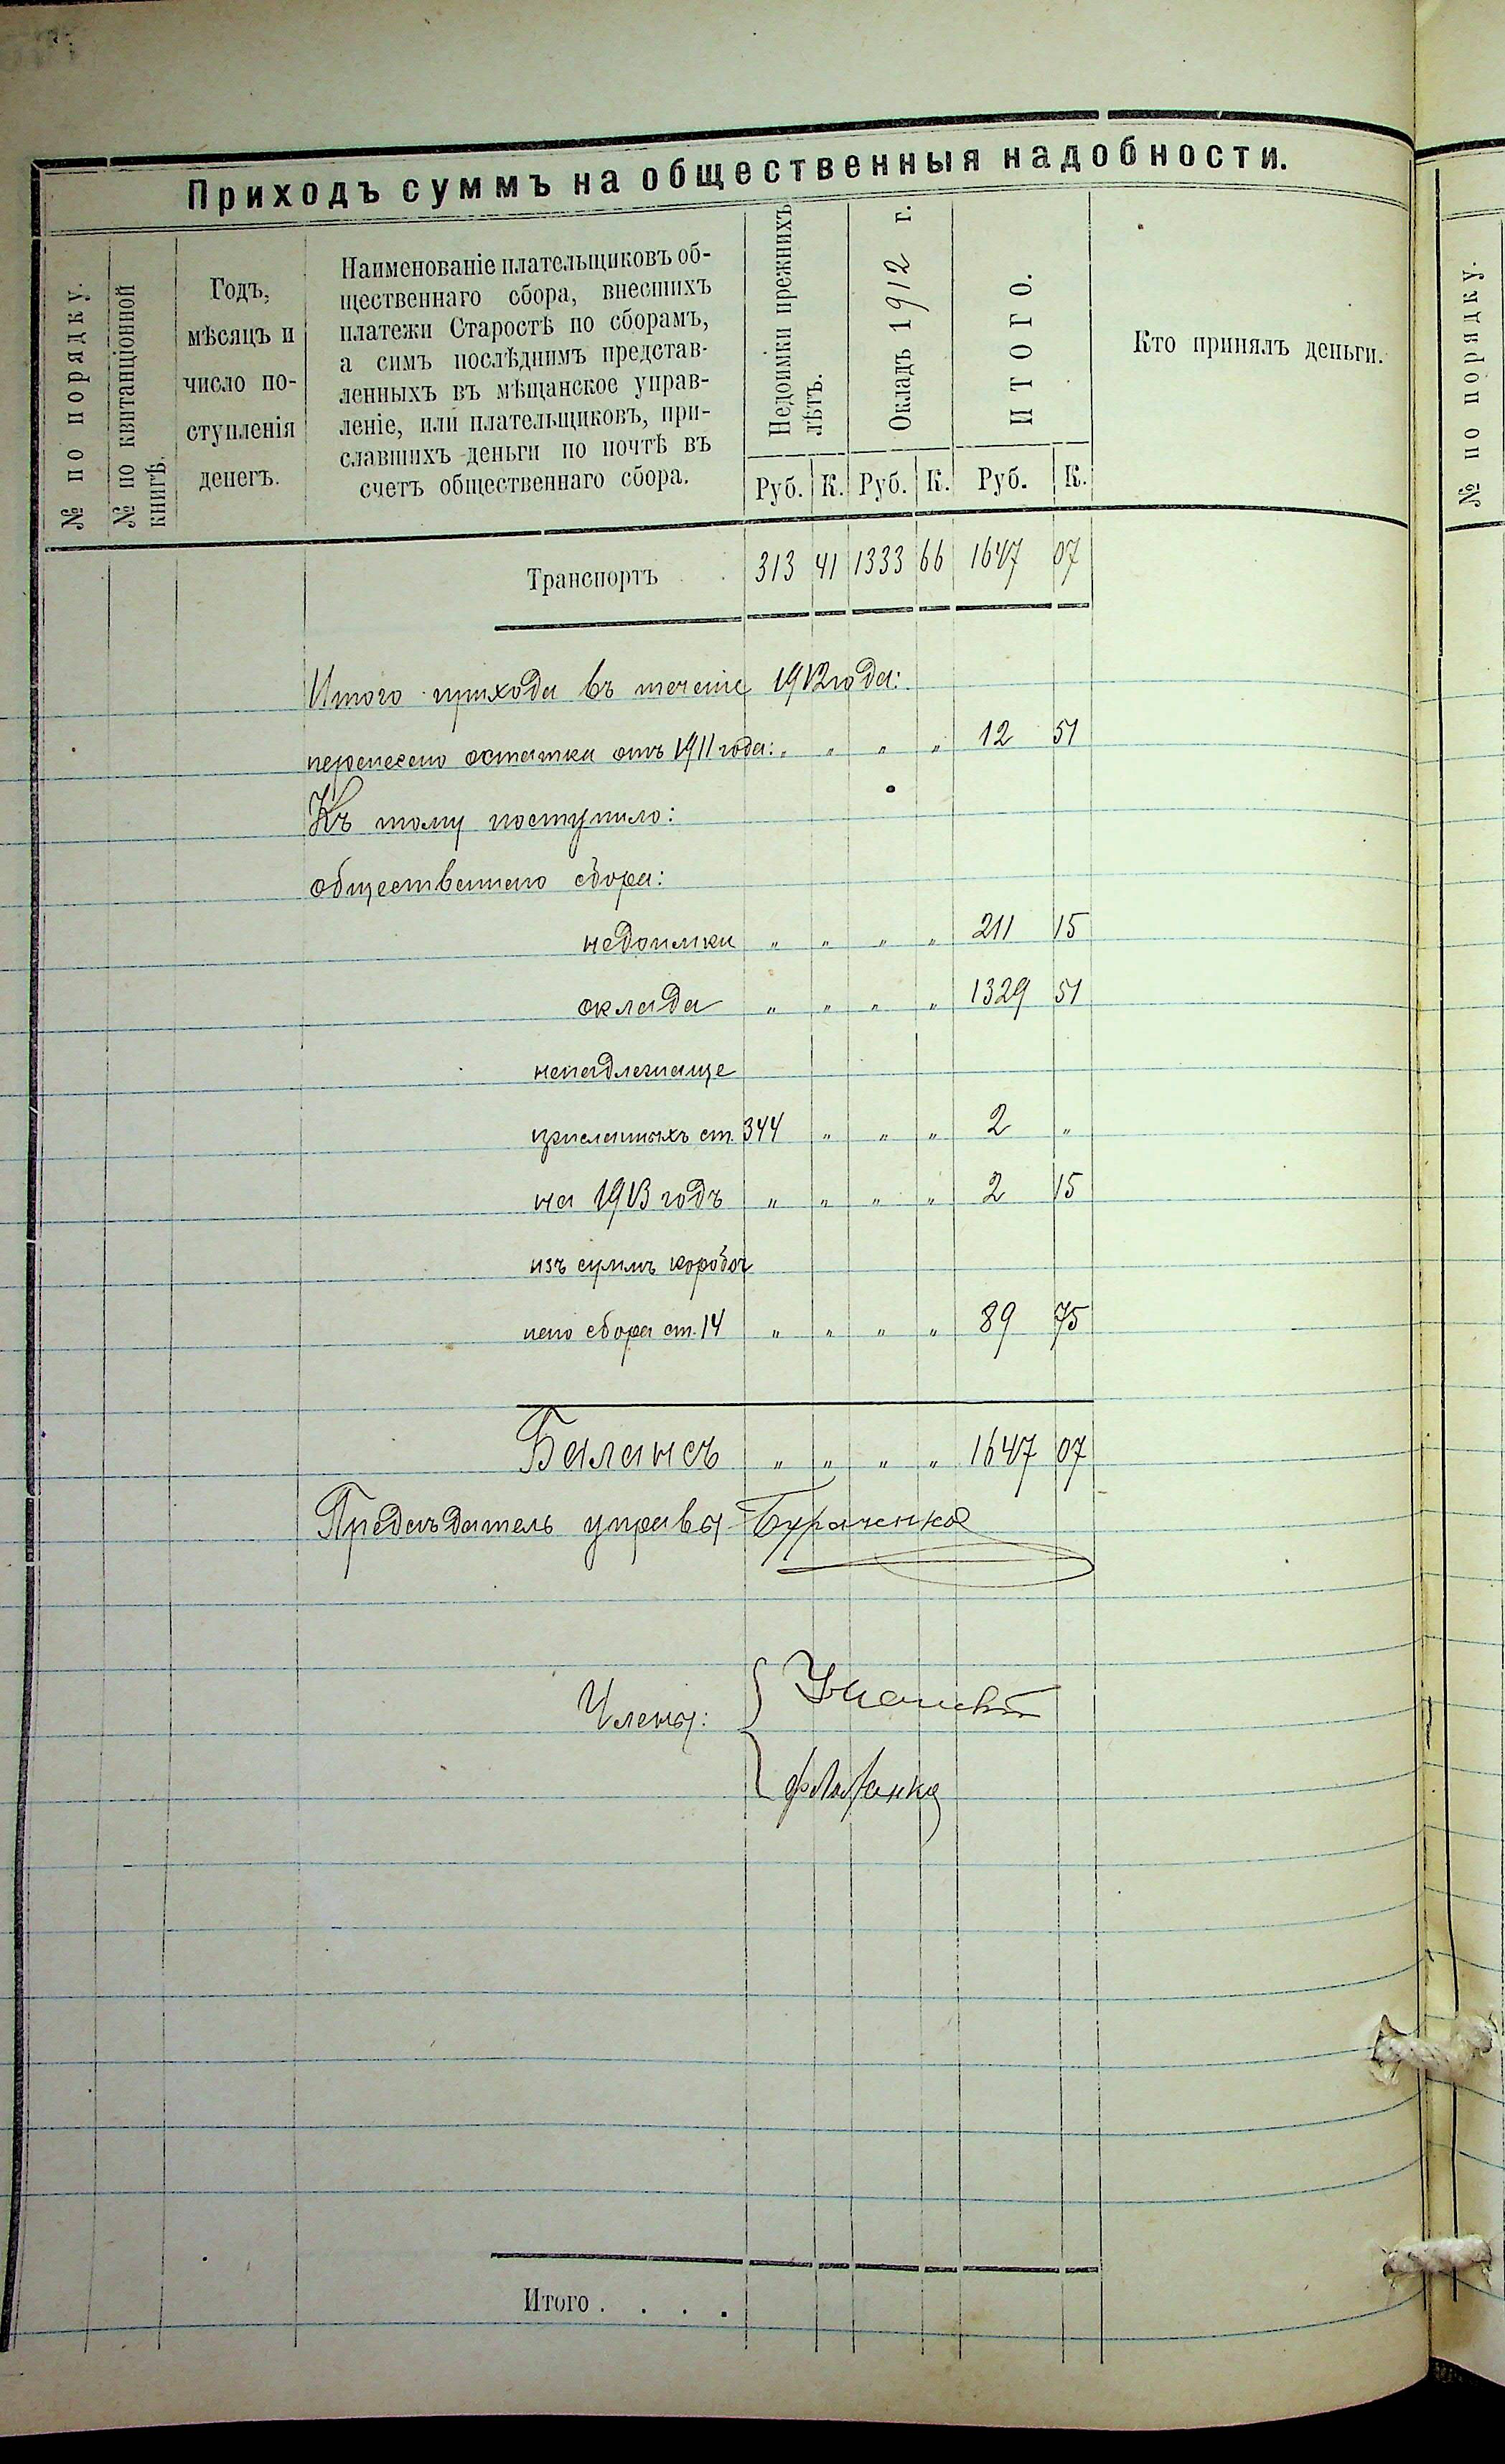 Приходъ суммъ на общественныя надобности.
№ по порядку.
№ по квитанціонной
книгѣ.
Годъ,
мѣсяцъ и
число по-
ступленія
денегъ.
Наименованіе плательщиковъ об-
щественнаго сбора, внесшихъ
платежи Старостѣ по сборамъ,
а симъ послѣднимъ представ-
ленныхъ въ мѣщанское управ-
леніе, или плательщиковъ, при-
славшихъ деньги по почтѣ въ
счетъ общественнаго сбора.
Недоимки прежнихъ
лѣтъ.
Окладъ 1912 г.
ИТОГО.
Кто принялъ деньги.
Руб. К. Руб. К. Руб. К.
Транспортъ 313 41 1333 66 1647 07
Итого прихода въ теченіе 1912 года:
перенесено остатка отъ 1911 года: „ „ „ „ 12 51
Къ тому поступило:
общественнаго сбора:
недоимки „ „ „ „ 211 15
оклада „ „ „ „ 1329 51
ненадлежаще
присланныхъ ст. 344 „ „ „ 2 „
на 1913 годъ „ „ „ „ 2 15
изъ суммъ коробоч
наго сбора ст. 14 „ „ „ „ 89 75
Балансъ „ „ „ „ 1647 07
Предсѣдатель управы Бураченко
Члены:
Итого . . . .
№ по порядку.